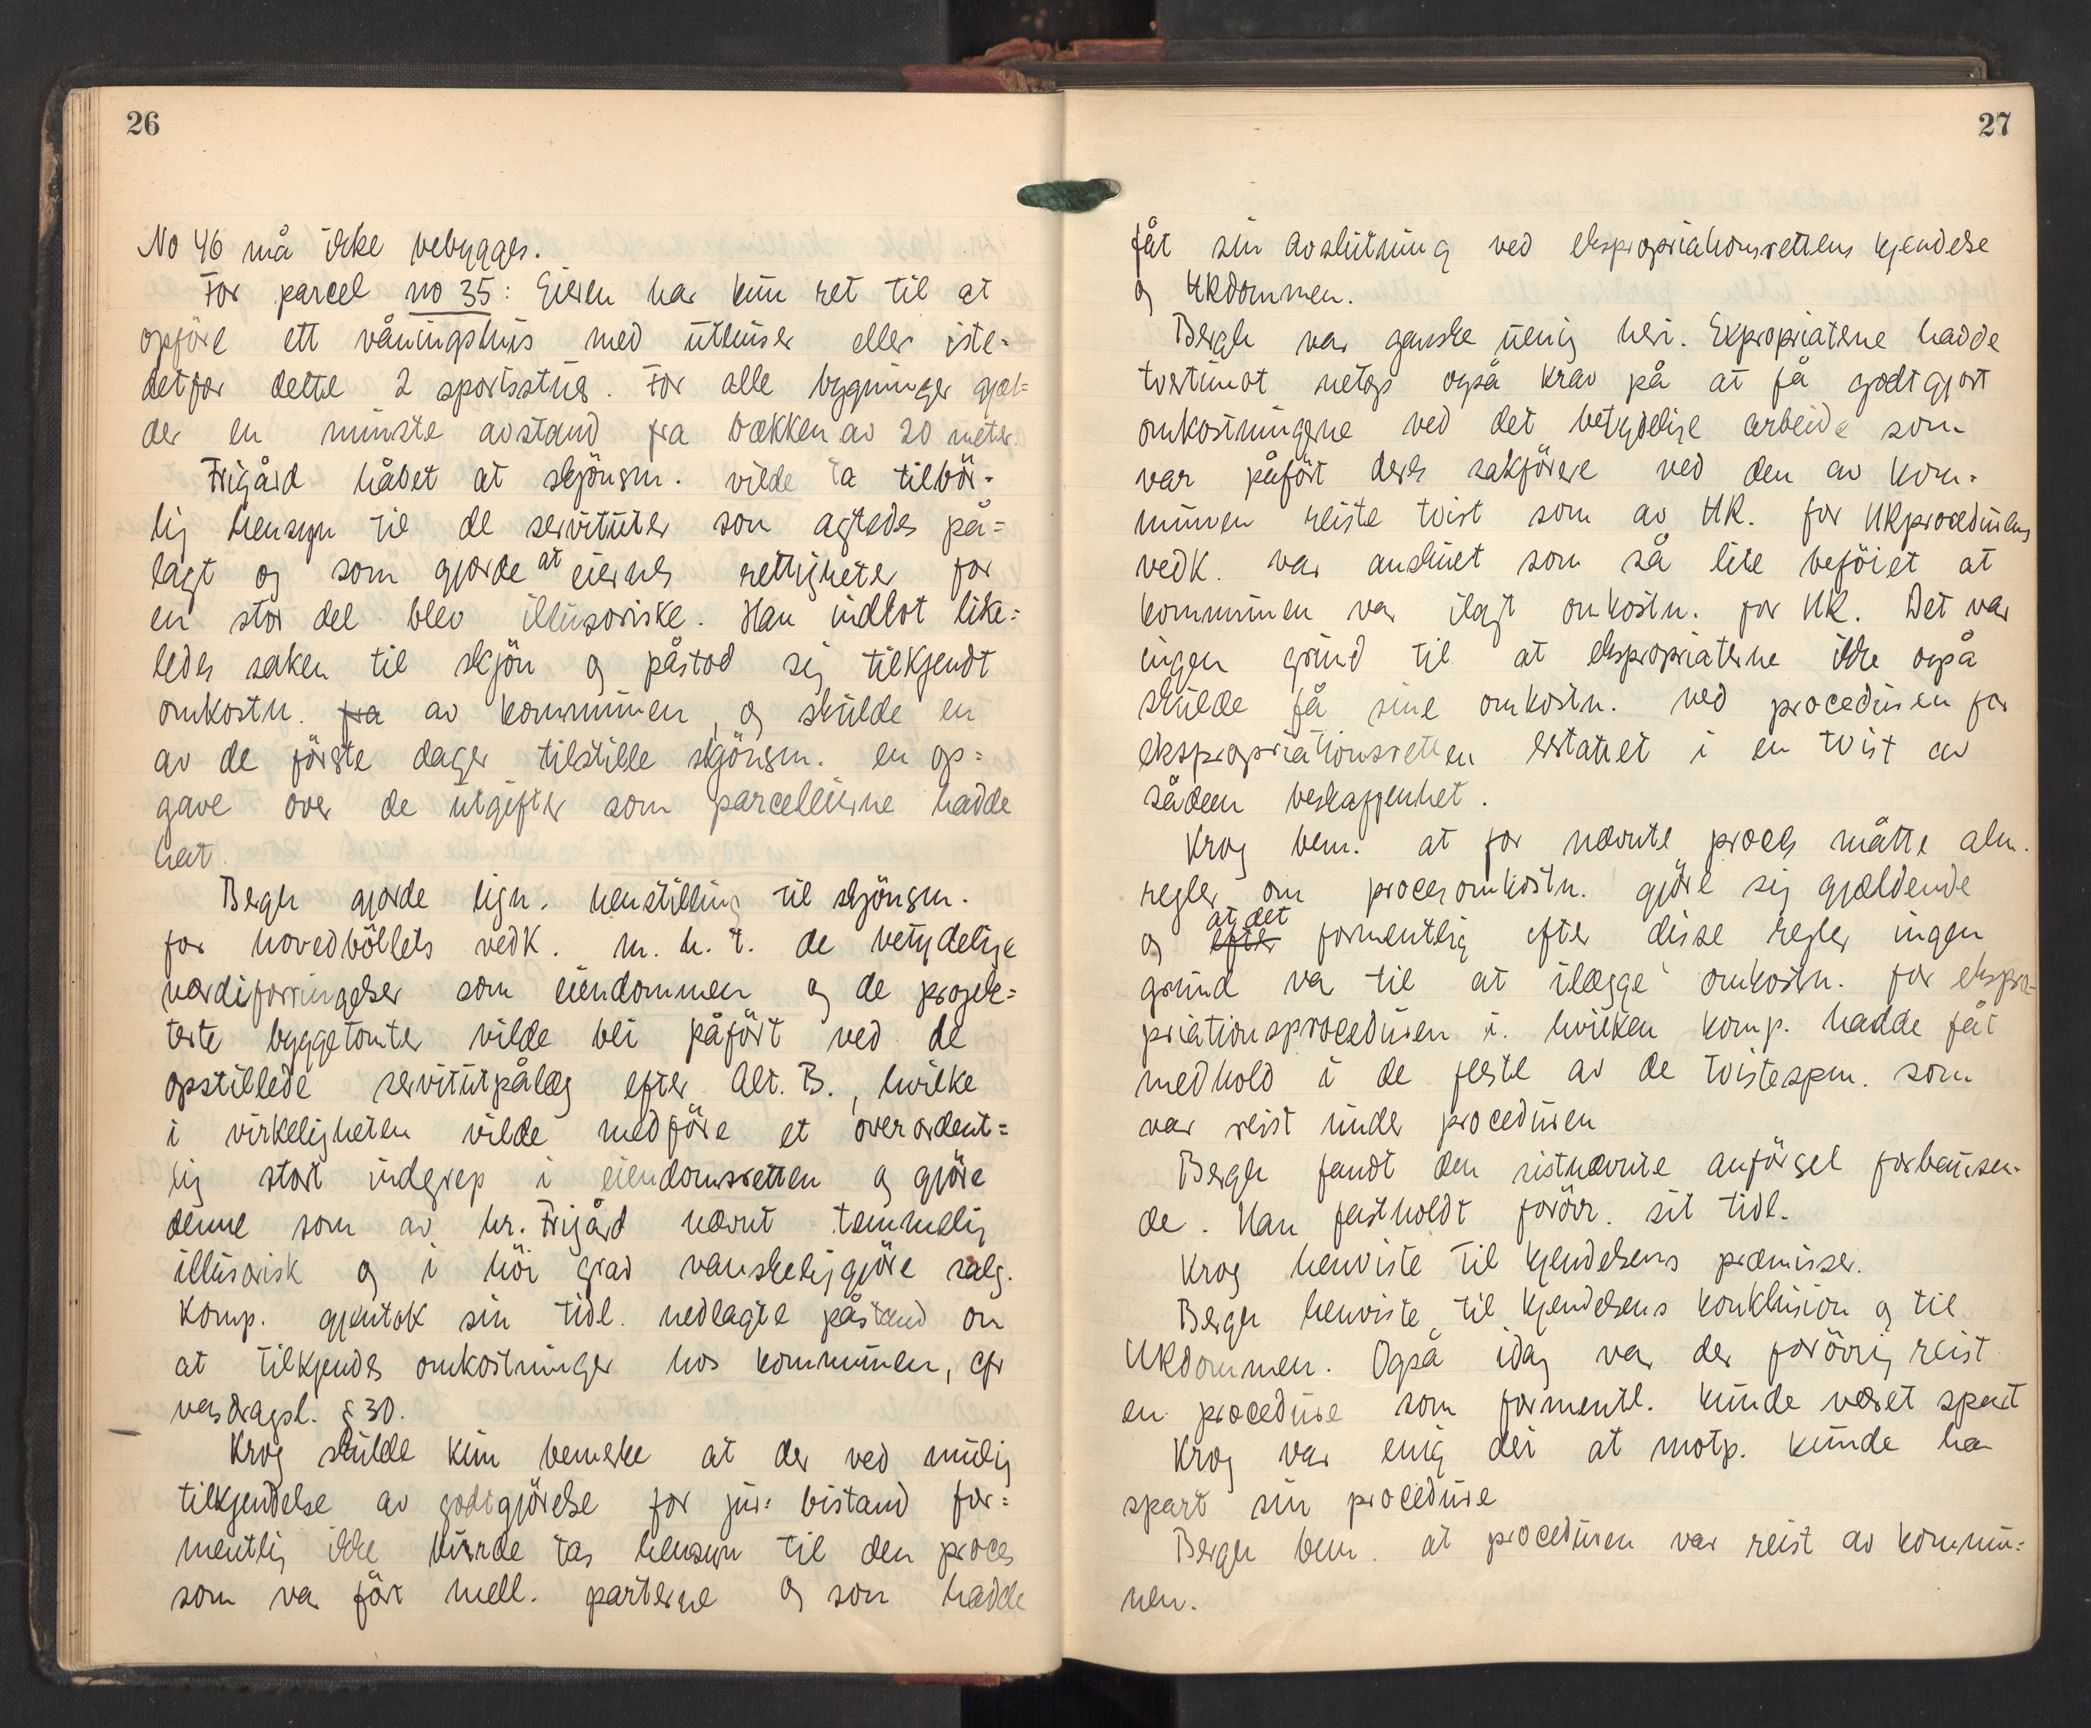 26
No 46 må ikke bebygges.
For parcel no 35: Eieren har kun ret til at
opföre ett våningshus med uthuser eller iste=
detfor dette 2 sportsstuer. For alle bygninger gjæl=
der en minste avstand fra bækken av 20 meter.
Frigård håbet at skjönsm. vilde ta tilbör=
lig hensyn til de servituter som agtedes på=
lagt og som gjorde at eiernes rettigheter for
en stor del blev illusoriske. Han indlot like=
ledes saken til skjön og påstod sig tilkjendt
omkostn. fra av kommunen, og skulde en
av de förste dager tilstille skjönsm. en op=
gave over de utgifter som parceleierne hadde
hat.
Bergh gjorde lign. henstilling til skjönsm.
for hovedbölets vedk. m. h. t. de betydelige
værdiforringelser som eiendommen og de projek=
terte byggetomter vilde bli påfört ved de
opstillede servitutpålæg efter Alt. B., hvilke
i virkeligheten vilde medföre et overordent=
lig stort indgrep i eiendomsretten og gjöre
denne som av hr. Frigård nævnt temmelig
illusorisk og i höi grad vanskeliggjöre salg.
Komp. gjentok sin tidl. nedlagte påstand om
at tilkjendes omkostninger hos kommunen, cfr
vasdragsl. § 30.
Krog skulde kun bemerke at der ved mulig
tilkjendelse av godtgjörelse for jur: bistand for=
mentlig ikke burde tas hensyn til den proces
som var fört mell. parterne og som hadde
27
fåt sin avslutning ved ekspropriationsrettens kjendelse
og HRdommen.
Bergh var ganske uenig heri. Expropriaterne hadde
tvertimot netop også krav på at få godtgjort
omkostningerne ved det betydelige arbeide som
var påfört deres sakförere ved den av kom=
munen reiste tvist som av HR. for HRprocedurens
vedk. var anslaaet som så lite beföiet at
kommunen var ilagt omkostn. for HR. Det var
ingen grund til at ekspropriaterne ikke også
skulde få sine omkostn. ved proceduren for
ekspropriationsretten erstattet i en tvist av
sådan beskaffenhet.
Krog bem. at for nævnte proces måtte alm.
regler om procesomkostn. gjöre sig gjældende
og efter at det formentlig efter disse regler ingen
grund var til at ilægge omkostn. for ekspro=
priationsproceduren i hvilken komp. hadde fåt
medhold i de fleste av de tvistespm. som
var reist under proceduren
Bergh fandt den sistnævnte anförsel forbausen=
de. Han fastholdt forövr. sit tidl.
Krog henviste til kjendelsens præmisser.
Bergh henviste til kjendelsens konklusion og til
HRdommen. Også idag var der forövrig reist
en procedure som formentl. kunde været spart
Krog var enig dri at motp. kunde ha
spart sin procedure
Bergh bem. at proceduren var reist av kommu=
nen.